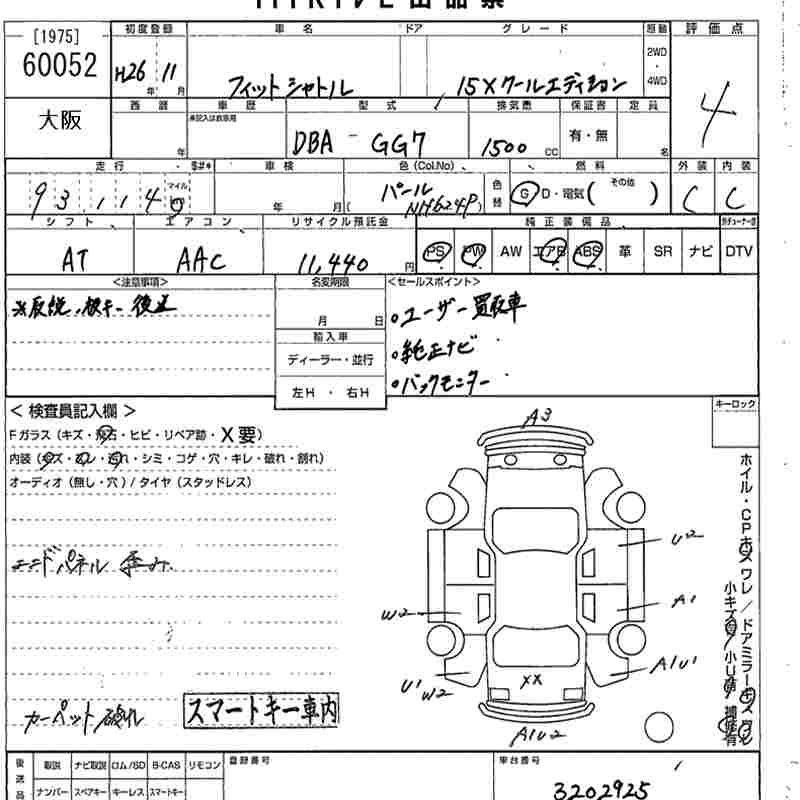 出品票
[1975]
60052
大阪
初度登録 車名 ドア グレード 駆動 評価点
H26 11 フィットシャトル 15Xクールエディション 2WD 4WD 4
年 月
車歴 型式 排気量 保証書 定員
DBA - GG7 1500 CC 有・無 名
走行 車検 色(Col.No) 燃料 外装 内装
93,114 マイル 年 月 パール NH624P 色替 G D・電気( その他 ) C C
シフト エアコン リサイクル預託金 純正装備品
AT AAC 11,440 円 PS PW AW エアB ABS 革 SR ナビ DTV
<注意事項> 名変期限 <セールスポイント>
月 日 ユーザー買取車
輸入車
ディーラー・並行 純正ナビ
左H ・ 右H バックモニター
<検査員記入欄> キーロック
Fガラス(キズ・飛石・ヒビ・リペア跡・X要)
内装(キズ・汚れ・シミ・コゲ・穴・キレ・破れ・割れ)
オーディオ(無し・穴)/タイヤ(スタッドレス)
エンドパネル 歪み
カーペット破れ
スマートキー車内
A3
U2
A1
W2
A1U1
U1
W2
XX
A1U2
後送品 取説 ナビ取説 ロム/SD B-CAS リモコン 登録番号 車台番号
ナンバー スペアキー キーレス スマートキー 3202925